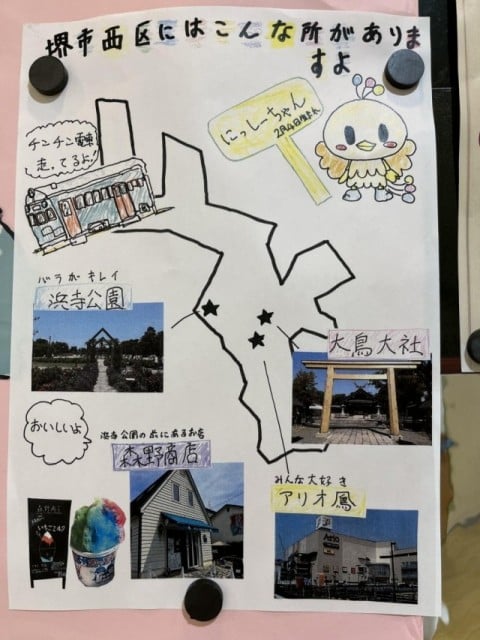 堺市西区にはこんな所がありま
すよ
にっしーちゃん
チンチン電車
走ってるよ!
バラがキレイ
浜寺公園
大鳥大社
おいしいよ
浜寺公園の近くにあるお店
森野商店
みんな大好き
アリオ鳳
Ario